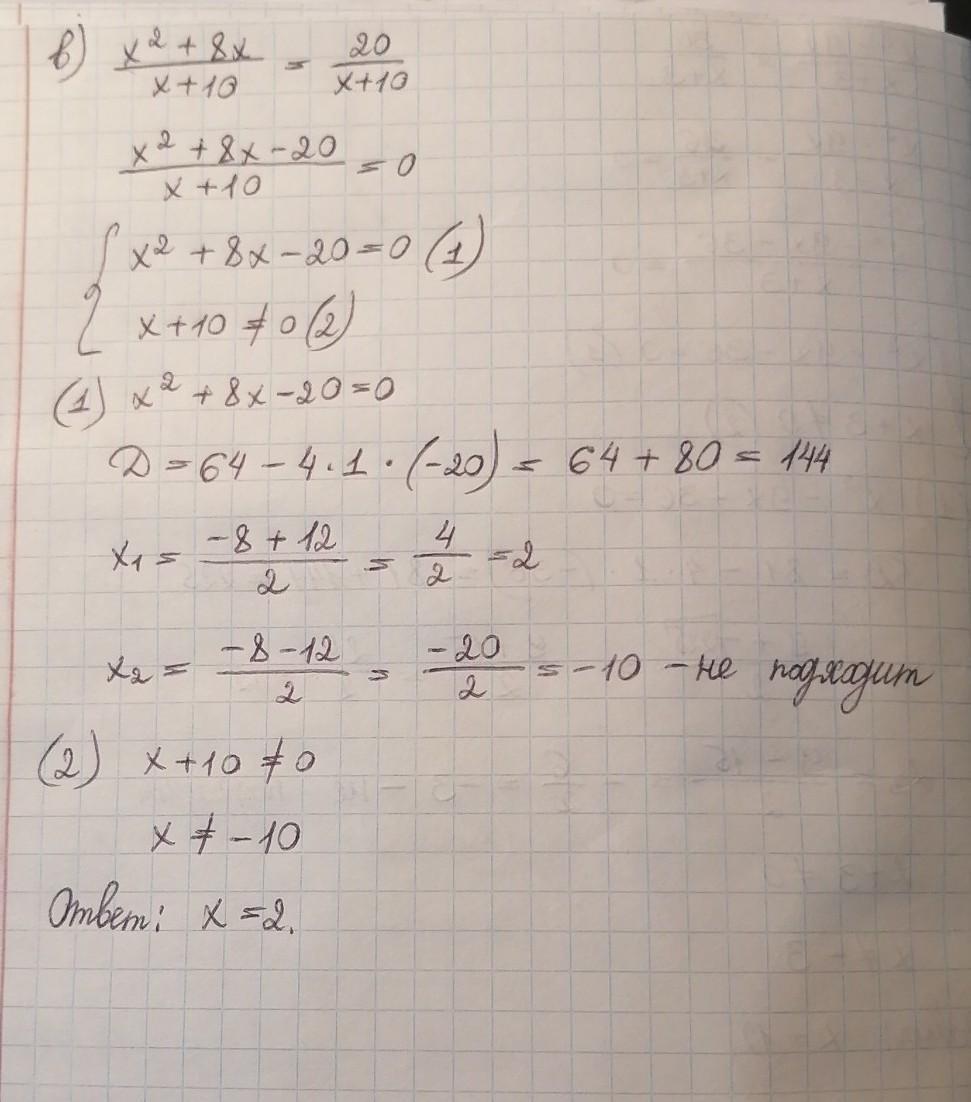 в) (x² + 8x)/(x+10) = 20/(x+10)
(x² + 8x - 20)/(x + 10) = 0
{ x² + 8x - 20 = 0 (1)
x + 10 ≠ 0 (2)
(1) x² + 8x - 20 = 0
D = 64 - 4·1·(-20) = 64 + 80 = 144
x₁ = (-8 + 12)/2 = 4/2 = 2
x₂ = (-8 - 12)/2 = -20/2 = -10 - не подходит
(2) x + 10 ≠ 0
x ≠ -10
Ответ: x = 2.